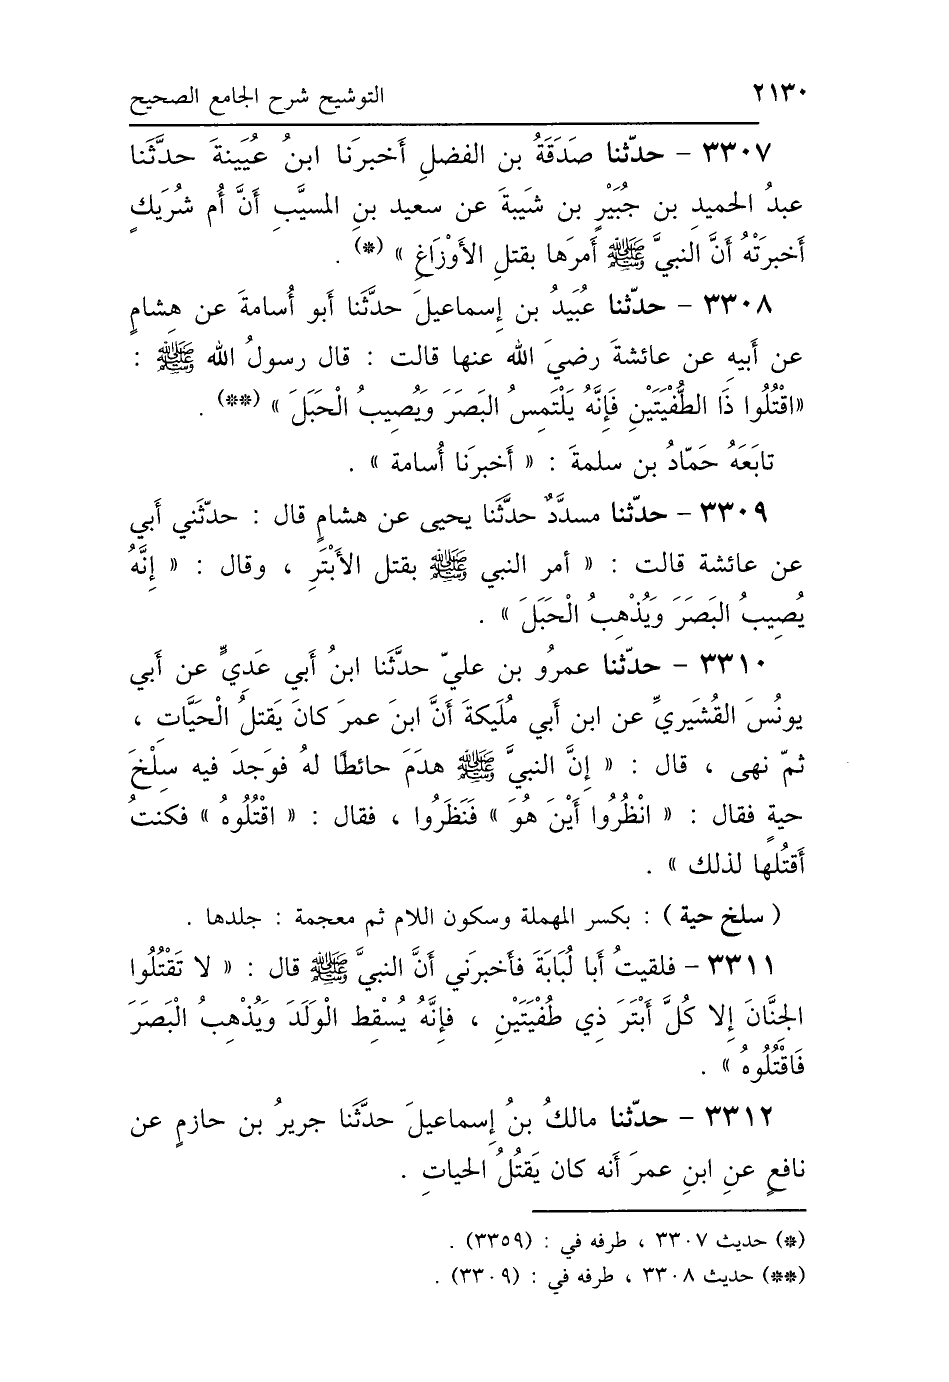 ٢١٣٠ التوشيح شرح الجامع الصحيح
٣٣٠٧ - حدّثنا صَدَقَةُ بن الفضلِ أَخبرَنا ابنُ عُيَينةَ حدَّثَنا
عبدُ الحميدِ بن جُبَيْرٍ بن شَيبةَ عن سعيد بنِ المسيَّبِ أَنَّ أُم شُرَيكٍ
أَخبرَتْهُ أَنَّ النبيَّ ﷺ أَمرَها بقتلِ الأَوْزَاغِ » (*) .
٣٣٠٨ - حدّثنا عُبَيدُ بن إِسماعيلَ حدَّثَنا أَبو أُسامةَ عن هِشامٍ
عن أَبيهِ عن عائشةَ رضيَ الله عنها قالت : قال رسولُ الله ﷺ :
«اقْتُلُوا ذَا الطُّفْيَتَيْنِ فَإِنَّهُ يَلْتَمِسُ البَصَرَ وَيُصِيبُ الْحَبَلَ » (**) .
تابَعَهُ حَمّادُ بن سلمةَ : « أَخبرَنا أُسامة » .
٣٣٠٩ - حدّثنا مسدَّدٌ حدَّثَنا يحيى عن هشامٍ قال : حدّثَني أَبي
عن عائشة قالت : « أمر النبي ﷺ بقتل الأَبْتَرِ ، وقال : « إِنَّهُ
يُصِيبُ البَصَرَ وَيُذْهِبُ الْحَبَلَ » .
٣٣١٠ - حدّثنا عمرُو بن عليّ حدَّثَنا ابنُ أَبي عَدِيٍّ عن أَبي
يونُسَ القُشَيريِّ عن ابن أَبي مُلَيكةَ أَنَّ ابنَ عمرَ كانَ يَقتلُ الْحَيَّاتِ ،
ثمّ نهى ، قال : « إِنَّ النبيَّ ﷺ هدَمَ حائطًا لهُ فوَجدَ فيه سِلْخَ
حيةٍ فقال : « انْظُرُوا أَيْنَ هُوَ » فَنَظَرُوا ، فقال : « اقْتُلُوهُ » فكنتُ
أَقتُلها لذلك » .
( سلخ حية ) : بكسر المهملة وسكون اللام ثم معجمة : جلدها .
٣٣١١ - فلقيتُ أَبا لُبَابَةَ فأَخبرَني أَنَّ النبيَّ ﷺ قال : « لا تَقْتُلُوا
الجِنَّانَ إِلا كُلَّ أَبْتَرَ ذِي طُفْيَتَيْنِ ، فإِنَّهُ يُسْقِط الْوَلَدَ وَيُذْهِبُ الْبَصَرَ
فَاقْتُلُوهُ » .
٣٣١٢ - حدّثنا مالكُ بنُ إِسماعيلَ حدَّثَنا جريرُ بن حازمٍ عن
نافعٍ عنِ ابنِ عمرَ أَنه كان يَقتُلُ الحياتِ .
(*) حديث ٣٣٠٧ ، طرفه في : (٣٣٥٩) .
(**) حديث ٣٣٠٨ ، طرفه في : (٣٣٠٩) .